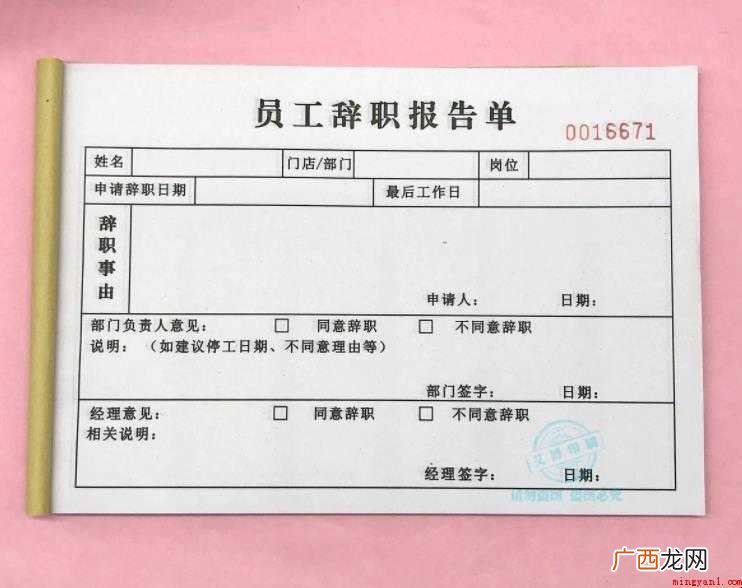 员工辞职报告单
0016671
姓名 门店/部门 岗位
申请辞职日期 最后工作日
辞职事由
申请人： 日期：
部门负责人意见： □ 同意辞职 □ 不同意辞职
说明：（如建议停工日期、不同意理由等）
部门签字： 日期：
经理意见： □ 同意辞职 □ 不同意辞职
相关说明：
艾博印刷
经理签字： 日期：
请勿盗图 盗图必究
广西龙网
mingyan1.com